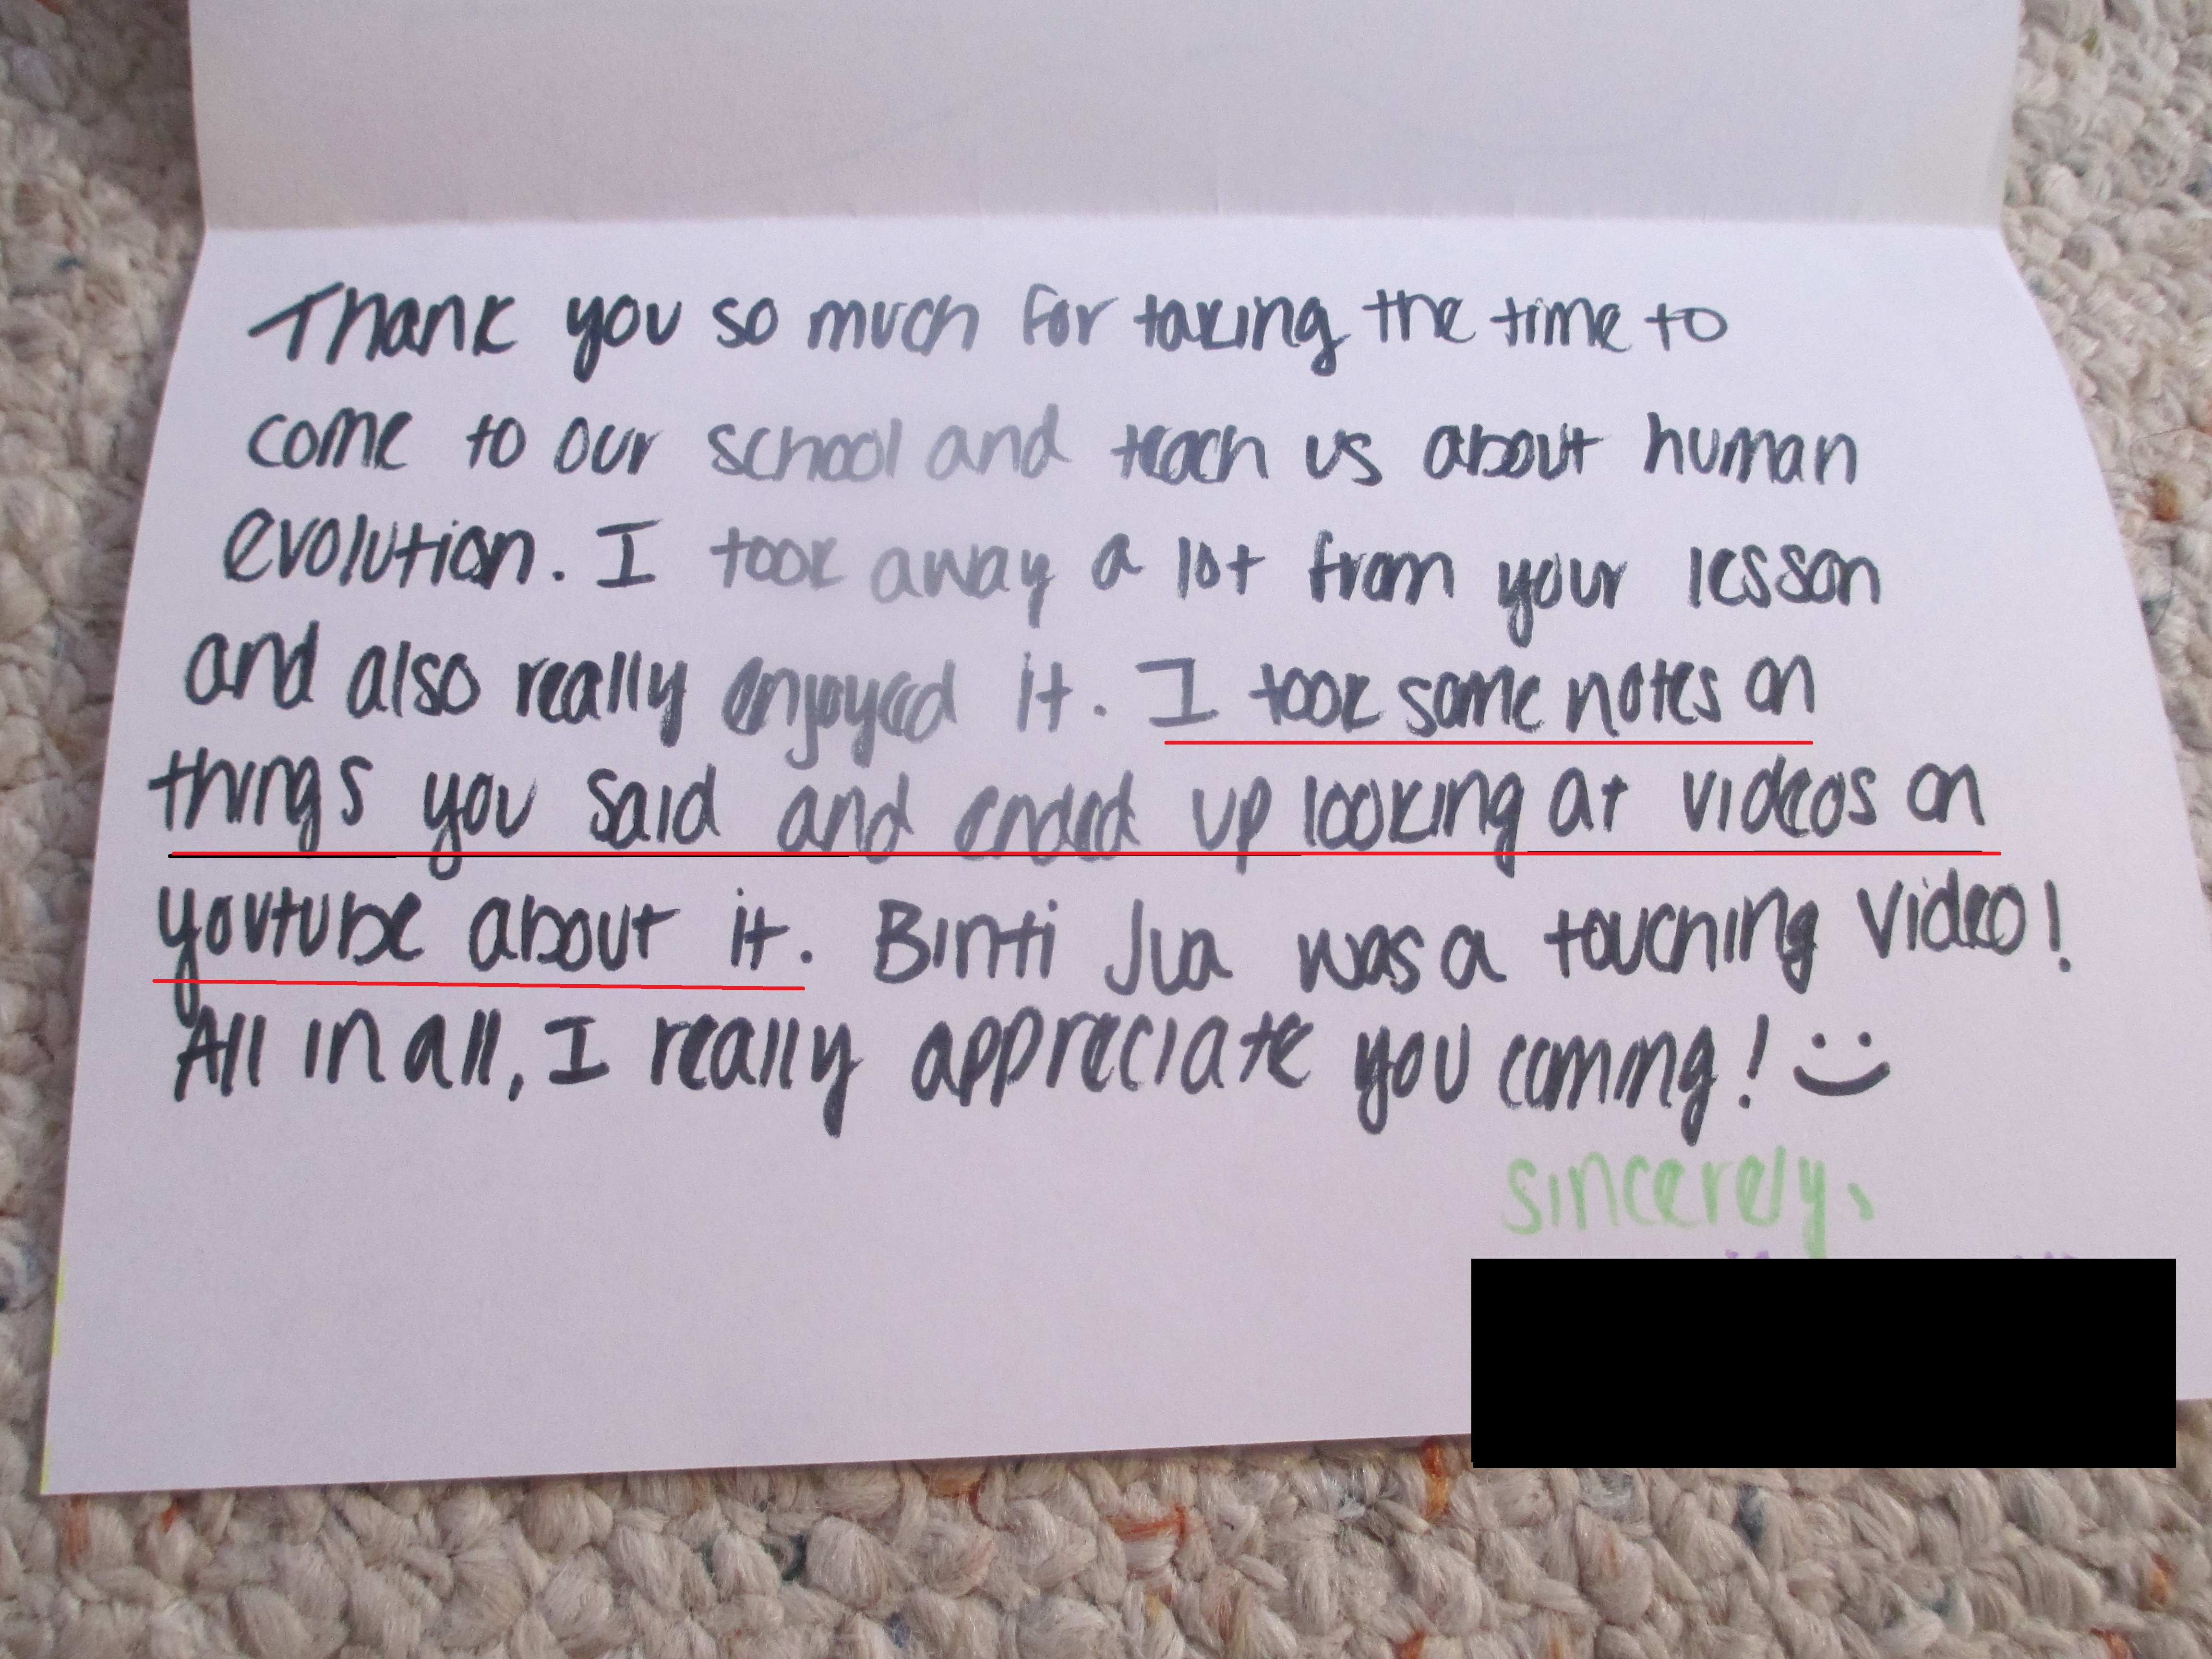 Thank you so much for taking the time to
come to our school and teach us about human
evolution. I took away a lot from your lesson
and also really enjoyed it. I took some notes on
things you said and ended up looking at videos on
youtube about it. Binti Jua was a touching video!
All in all, I really appreciate you coming! :)
sincerely,